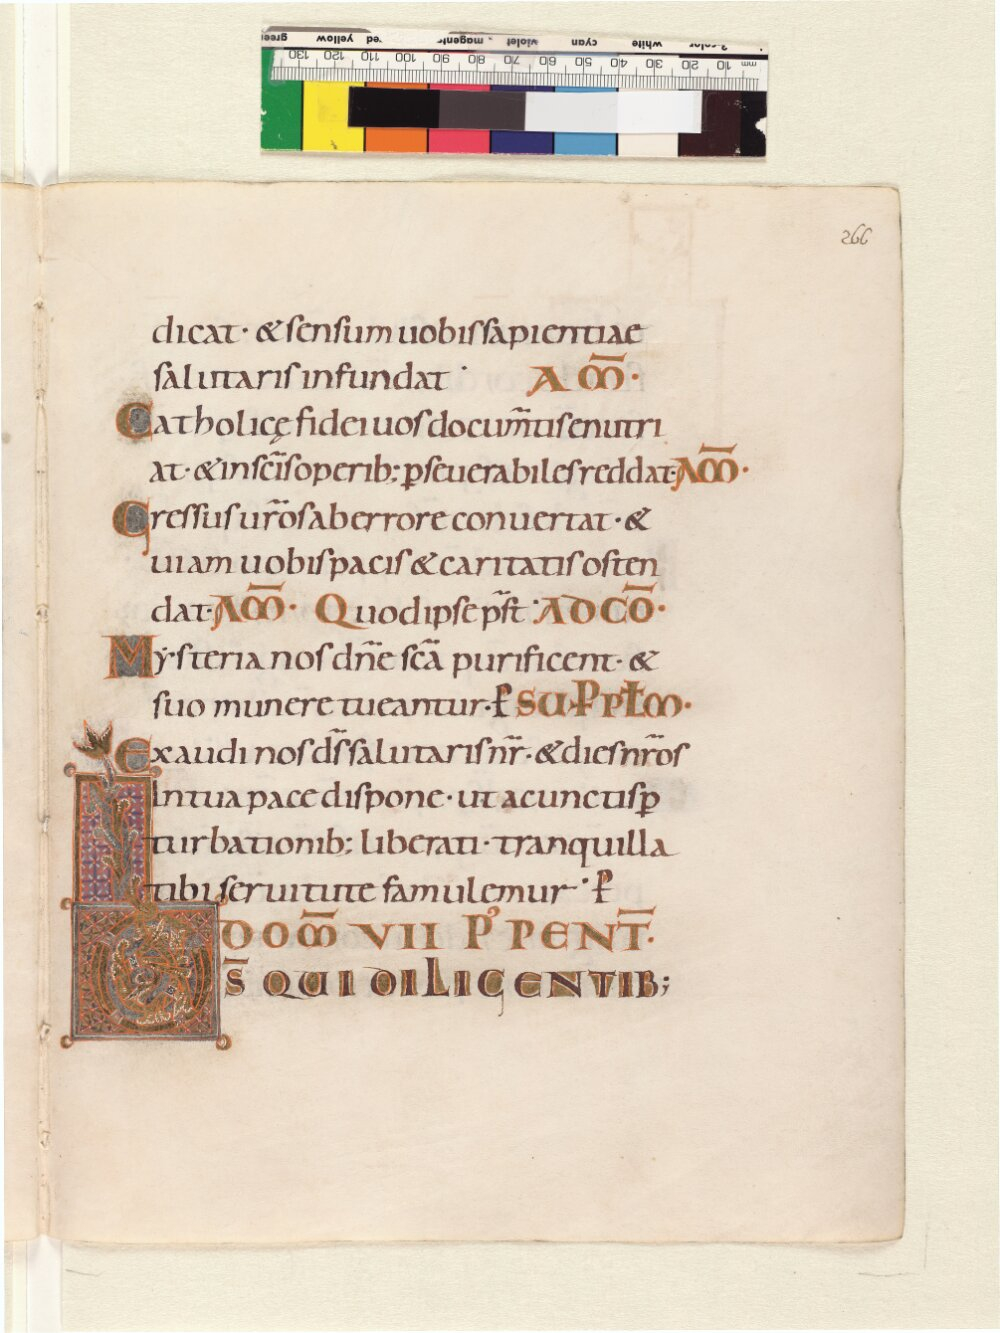 green yellow red magenta violet cyan white 3-color
130 120 110 100 90 80 70 60 50 40 30 20 10 mm
266
dicat· &sensum uobis sapientiae
salutaris infundat· AM̅·
Catholicę fidei uos docum̅tis enutri
at· & in sc̅is operib; pseuerabiles reddat· AM̅·
Gressus ur̅os ab errore conuertat· &
uiam uobis pacis & caritatis osten
dat· AM̅· Quod ipse p̅st· AD CO̅·
Mẏsteria nos dn̅e sc̅a purificent· &
suo munere tueantur· P̶ SUP PPLM·
Exaudi nos ds̅ salutaris nr̅· & dies nr̅os
In tua pace dispone· ut a cunctis p̱
turbationib; liberati· tranquilla
tibi seruitute famulemur· P̶
DOM̅ VII P' PENT̅·
DS̅ QUI DILIGENTIB;